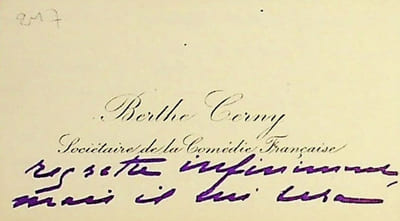 2117
Berthe Cerny
Sociétaire de la Comédie Française
regrette infiniment,
mais il lui sera